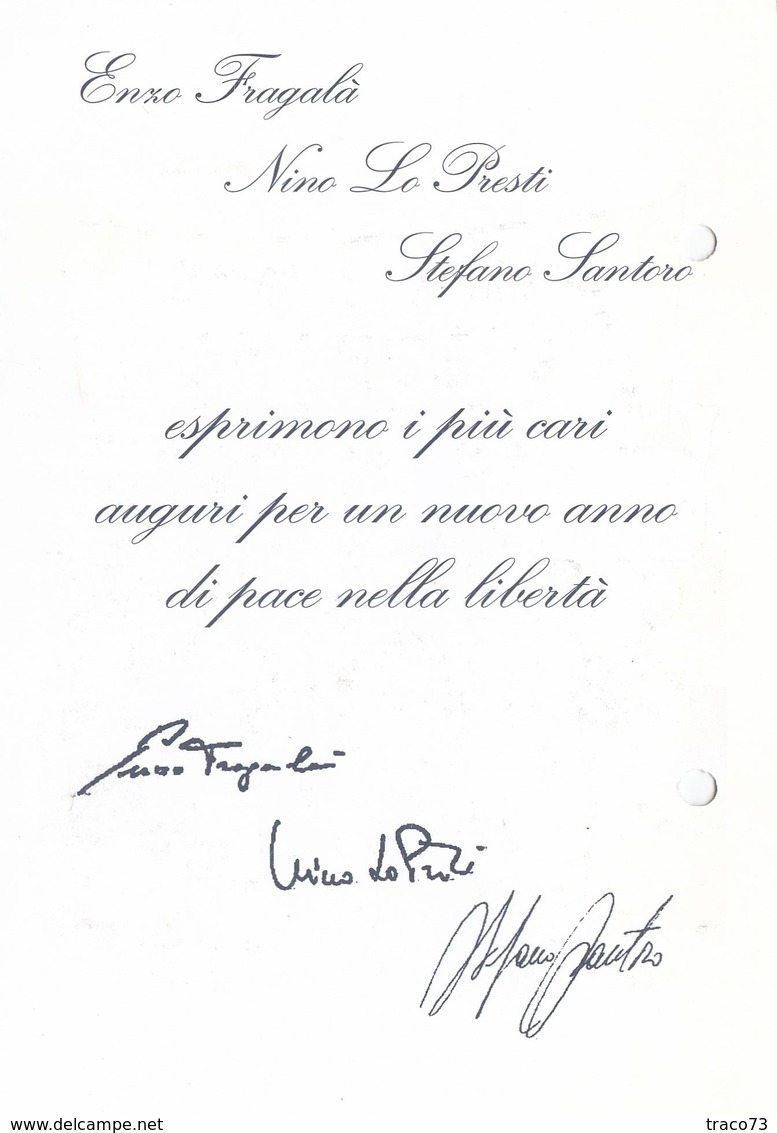 Enzo Fragalà
Nino Lo Presti
Stefano Santoro
esprimono i più cari
auguri per un nuovo anno
di pace nella libertà
Enzo Fragalà
Nino Lo Presti
Stefano Santoro
www.delcampe.net
traco73